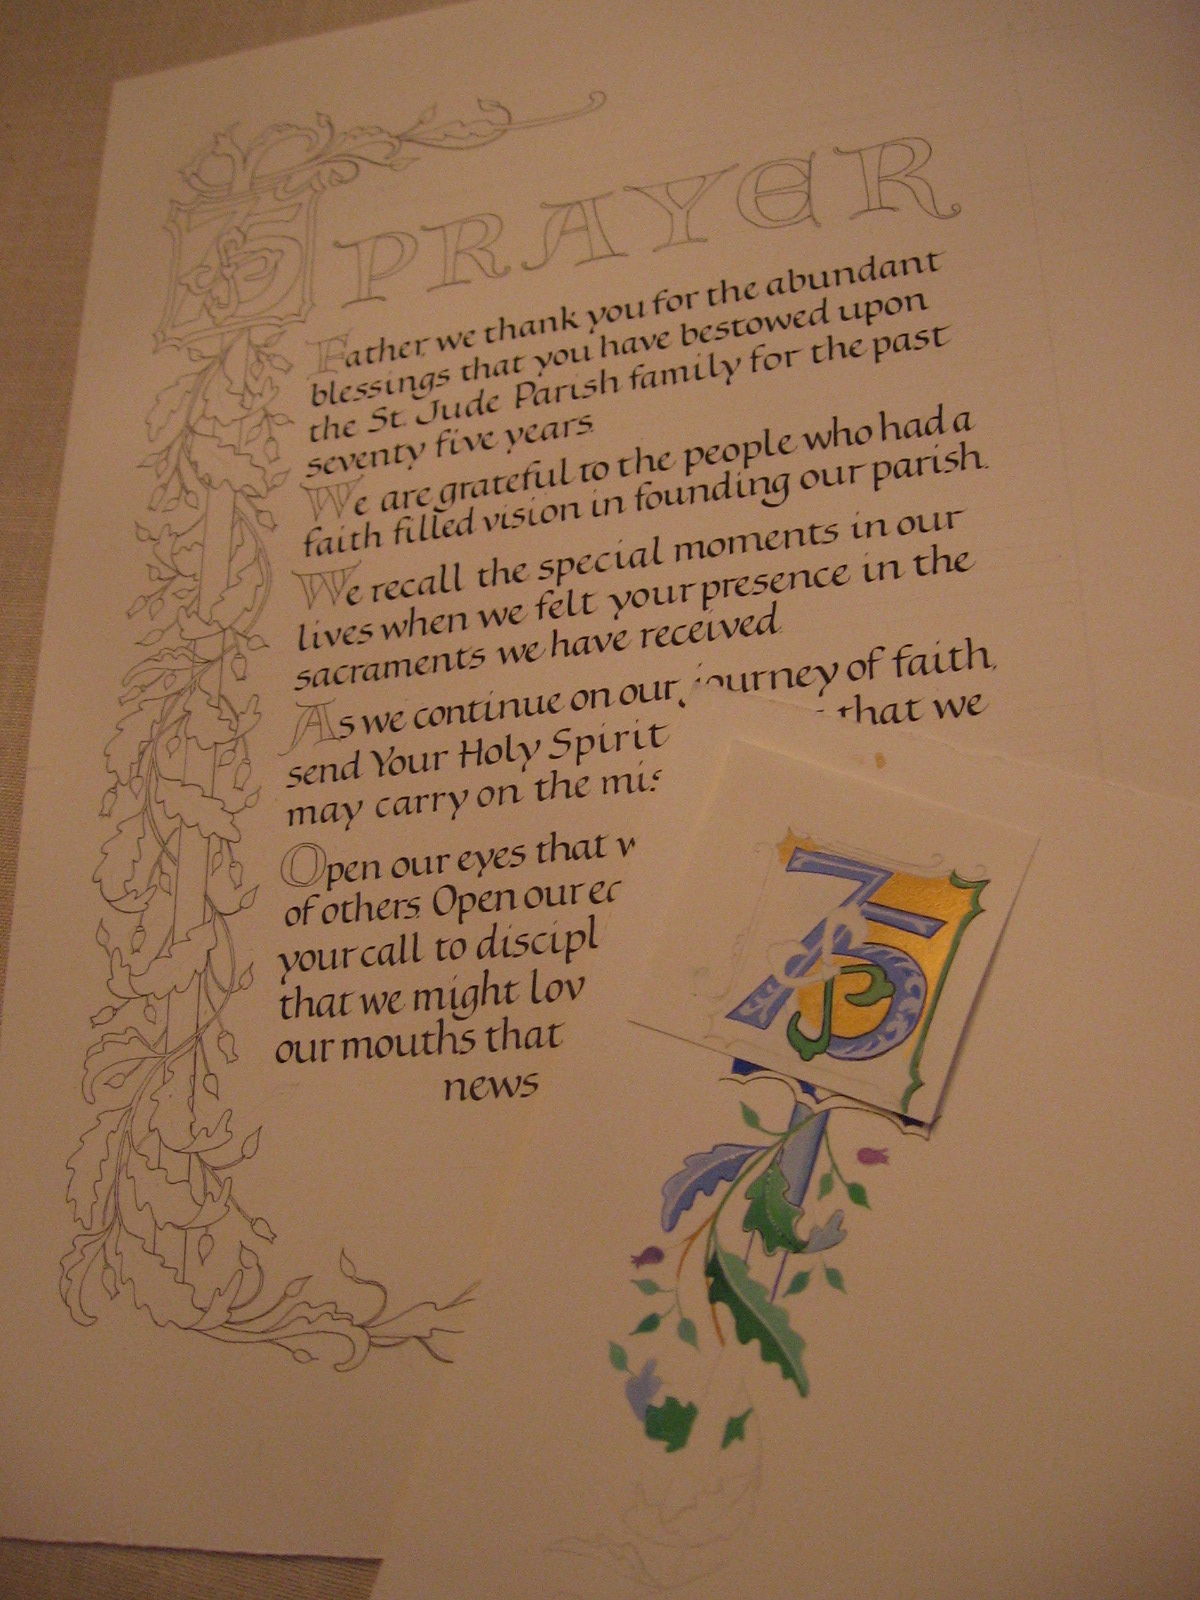 75
PRAYER
Father, we thank you for the abundant
blessings that you have bestowed upon
the St. Jude Parish family for the past
seventy five years.
We are grateful to the people who had a
faith filled vision in founding our parish.
We recall the special moments in our
lives when we felt your presence in the
sacraments we have received.
As we continue on our journey of faith,
send Your Holy Spirit that we
may carry on the
Open our eyes that
of others. Open our
your call to
that we might
our mouths that
news
75